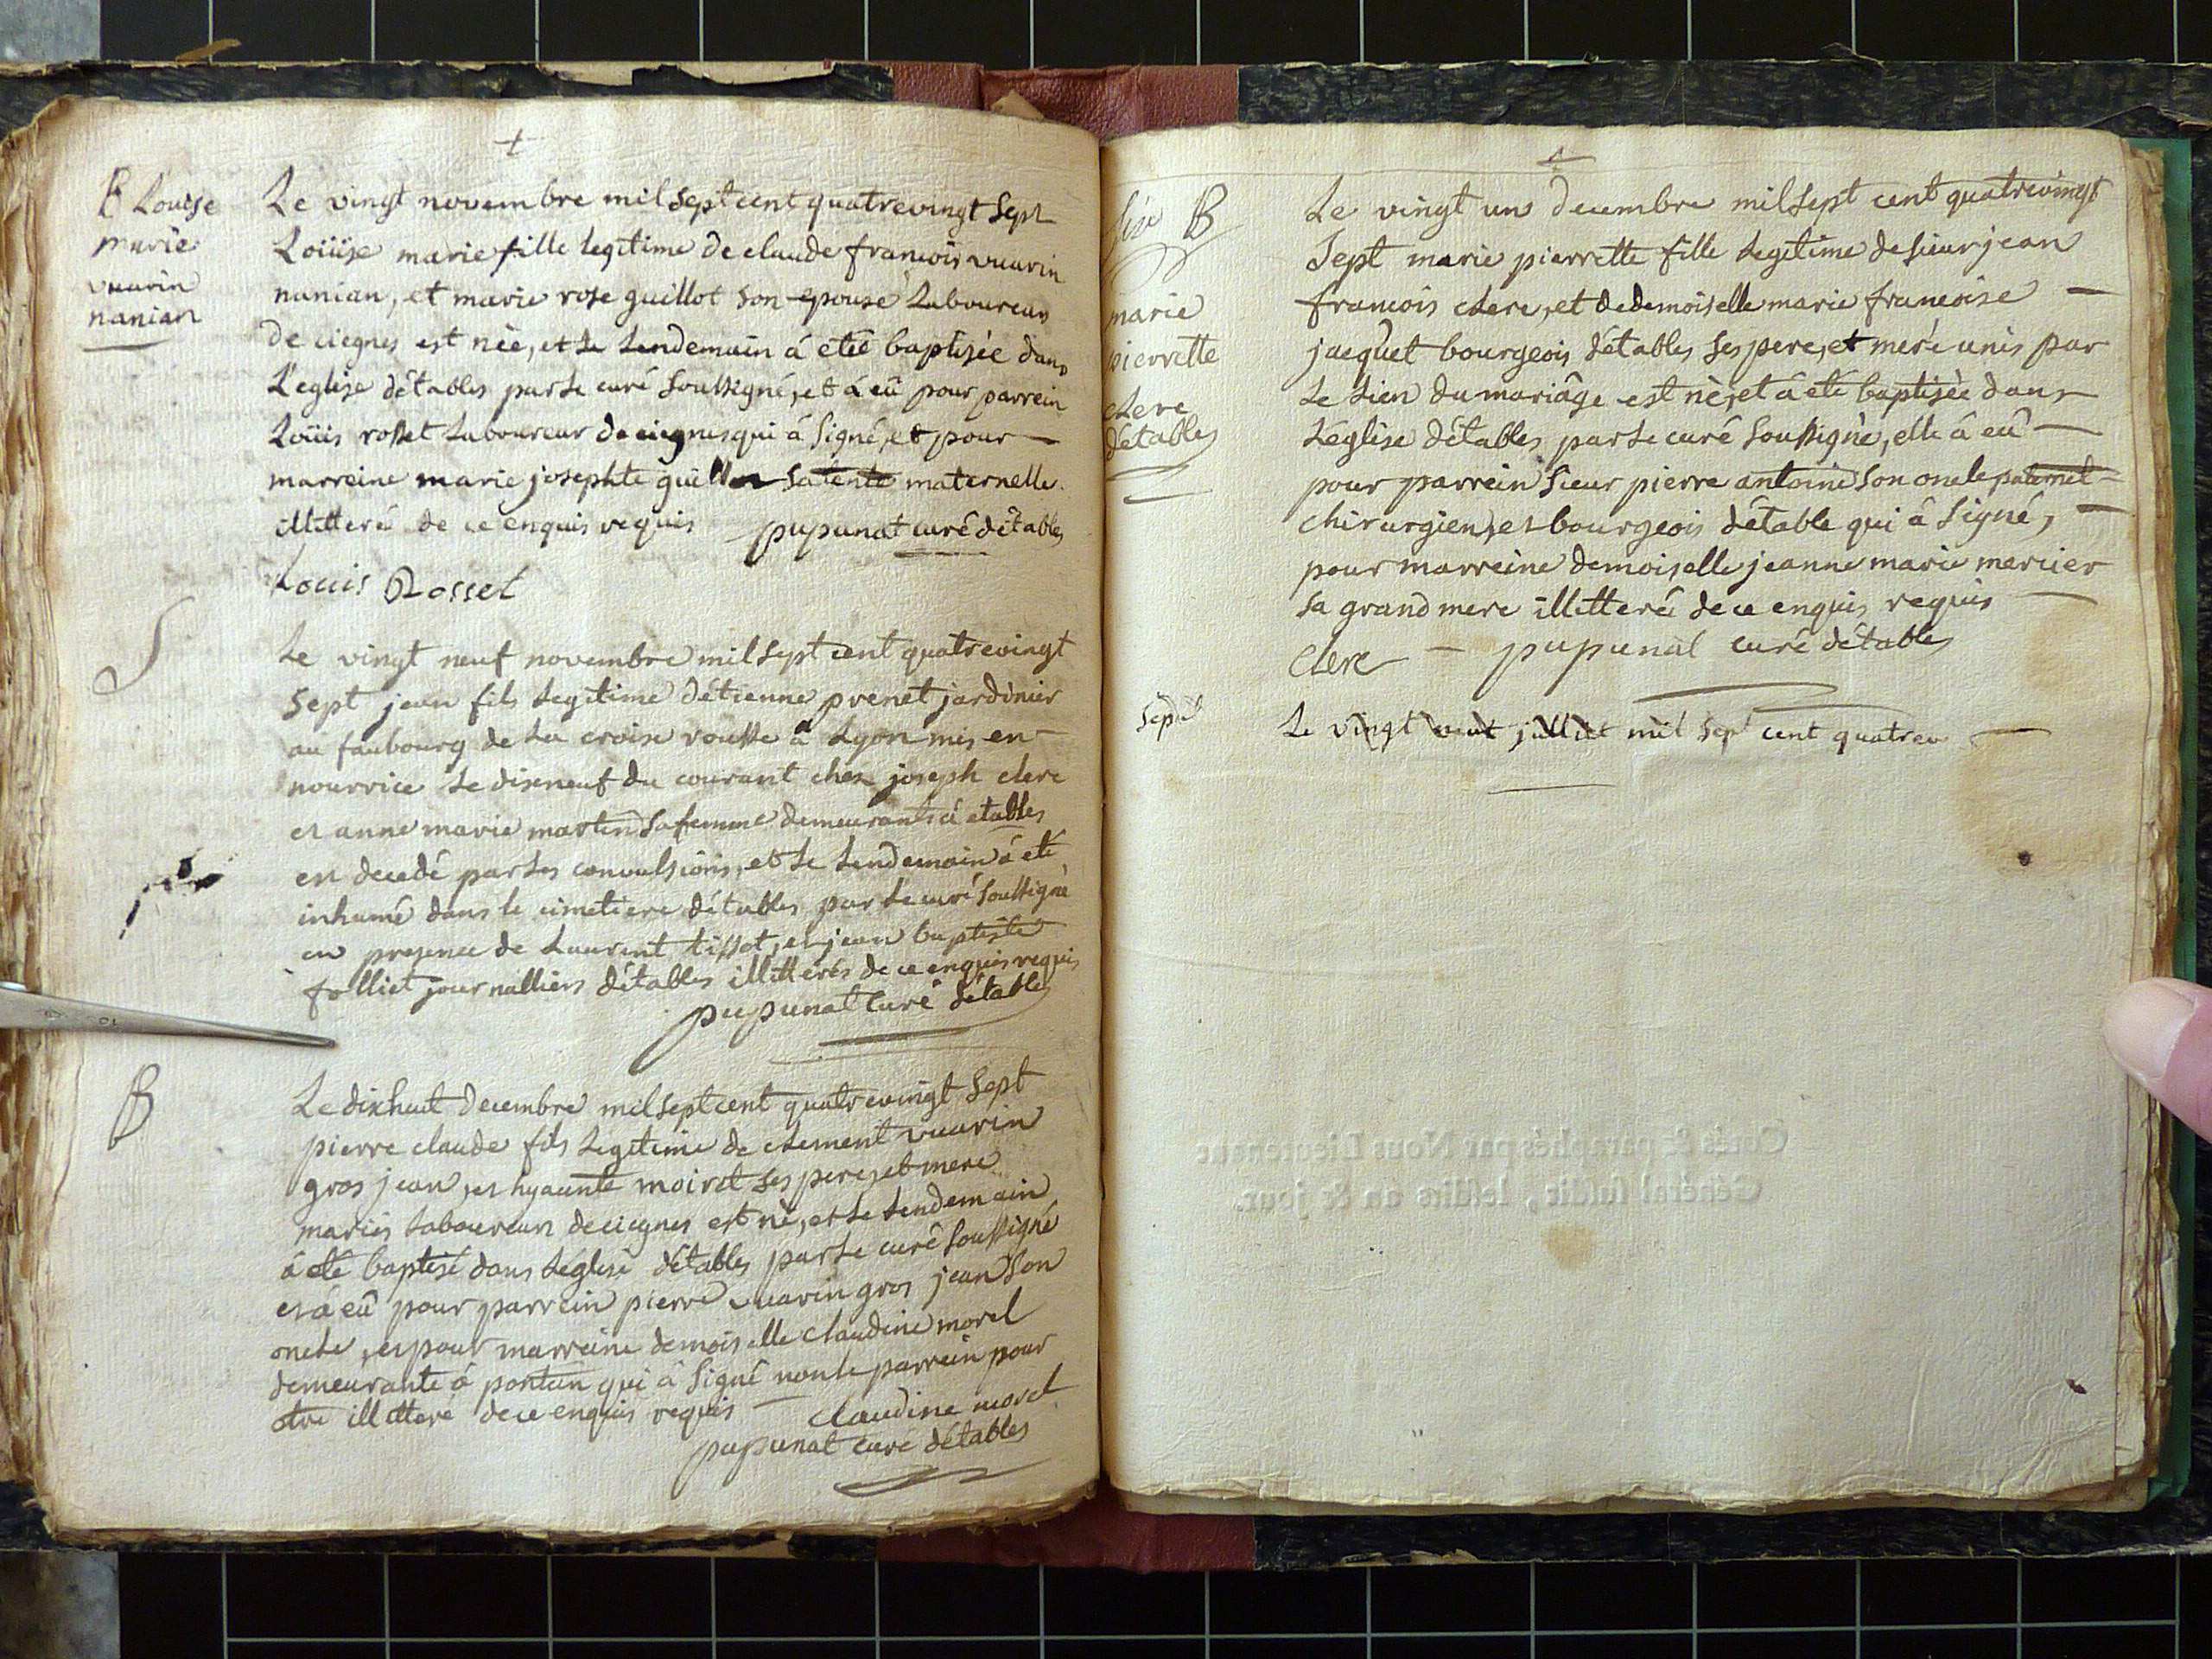 B Louise
marie
vuarin
nanian
Le vingt novembre mil sept cent quatrevingt sept
Loüise marie fille legitime de claude francois vuarin
nanian, et marie rose guillot son epouse Laboureurs
de ciegnes est née, et Le Lendemain á eteé baptisée dans
L'eglise détables par Le curé soussigné, et á eû pour parrein
Loüis rosset Laboureur de ciegnes qui á signé, et pour
marreine marie josephte guillot sa tente maternelle
illitteré de ce enquis requis pupunat curé détables
Louis Rosset
S
Le vingt neuf novembre mil sept cent quatrevingt
sept jean fils Legitime détienne prenet jardinier
au faubourg de La croix rousse a Lyon mis en
nourrice Le dixneuf du courant chez joseph clerc
et anne marie martin sa femme demeurants á etables
en decedé par Les convulsions, et Le Lendemain á eté
inhumé dans le cimetiere détables par Le curé soussigné
en presence de Laurent tissot, et jean baptiste
folliet journalliers détables illitterés de ce enquis requis
pupunat Curé détables
B
Le dixhuit decembre mil sept cent quatrevingt sept
pierre claude fils Legitime de clement vuarin
gros jean, et hyacinte moiret ses pere, et mere
mariés Laboureurs de ciegnes est né, et Le Lendemain
á eté baptisé dans Léglise détables par Le curé soussigné
et á eû pour parrein pierre vuarin gros jean son
oncle, et pour marreine demoiselle claudine morel
demeurante á pontein qui á signé non le parrein pour
etre illitteré de ce enquis requis claudine morel
pupunat curé détables
six B
marie
pierrette
clerc
détables
Le vingt un decembre mil sept cent quatrevingt
sept marie pierrette fille Legitime de sieur jean
francois clerc, et de demoiselle marie francoise
jacquet bourgeois détables ses pere, et mere unis par
Le Lien du mariâge est né, et á eté baptisée dans
Léglise détables par Le curé soussigné, elle á eû
pour parrein sieur pierre antoine son oncle paternel
chirurgien, et bourgeois détable qui á signé,
pour marreine demoiselle jeanne marie mercier
sa grand mere illitteré de ce enquis requis
Clerc pupunat curé détables
sept
Le vingt huit juillet mil sept cent quatrev
Cotés & paraphés par Nous Lieutenant
Général susdit, lesdits an & jour.